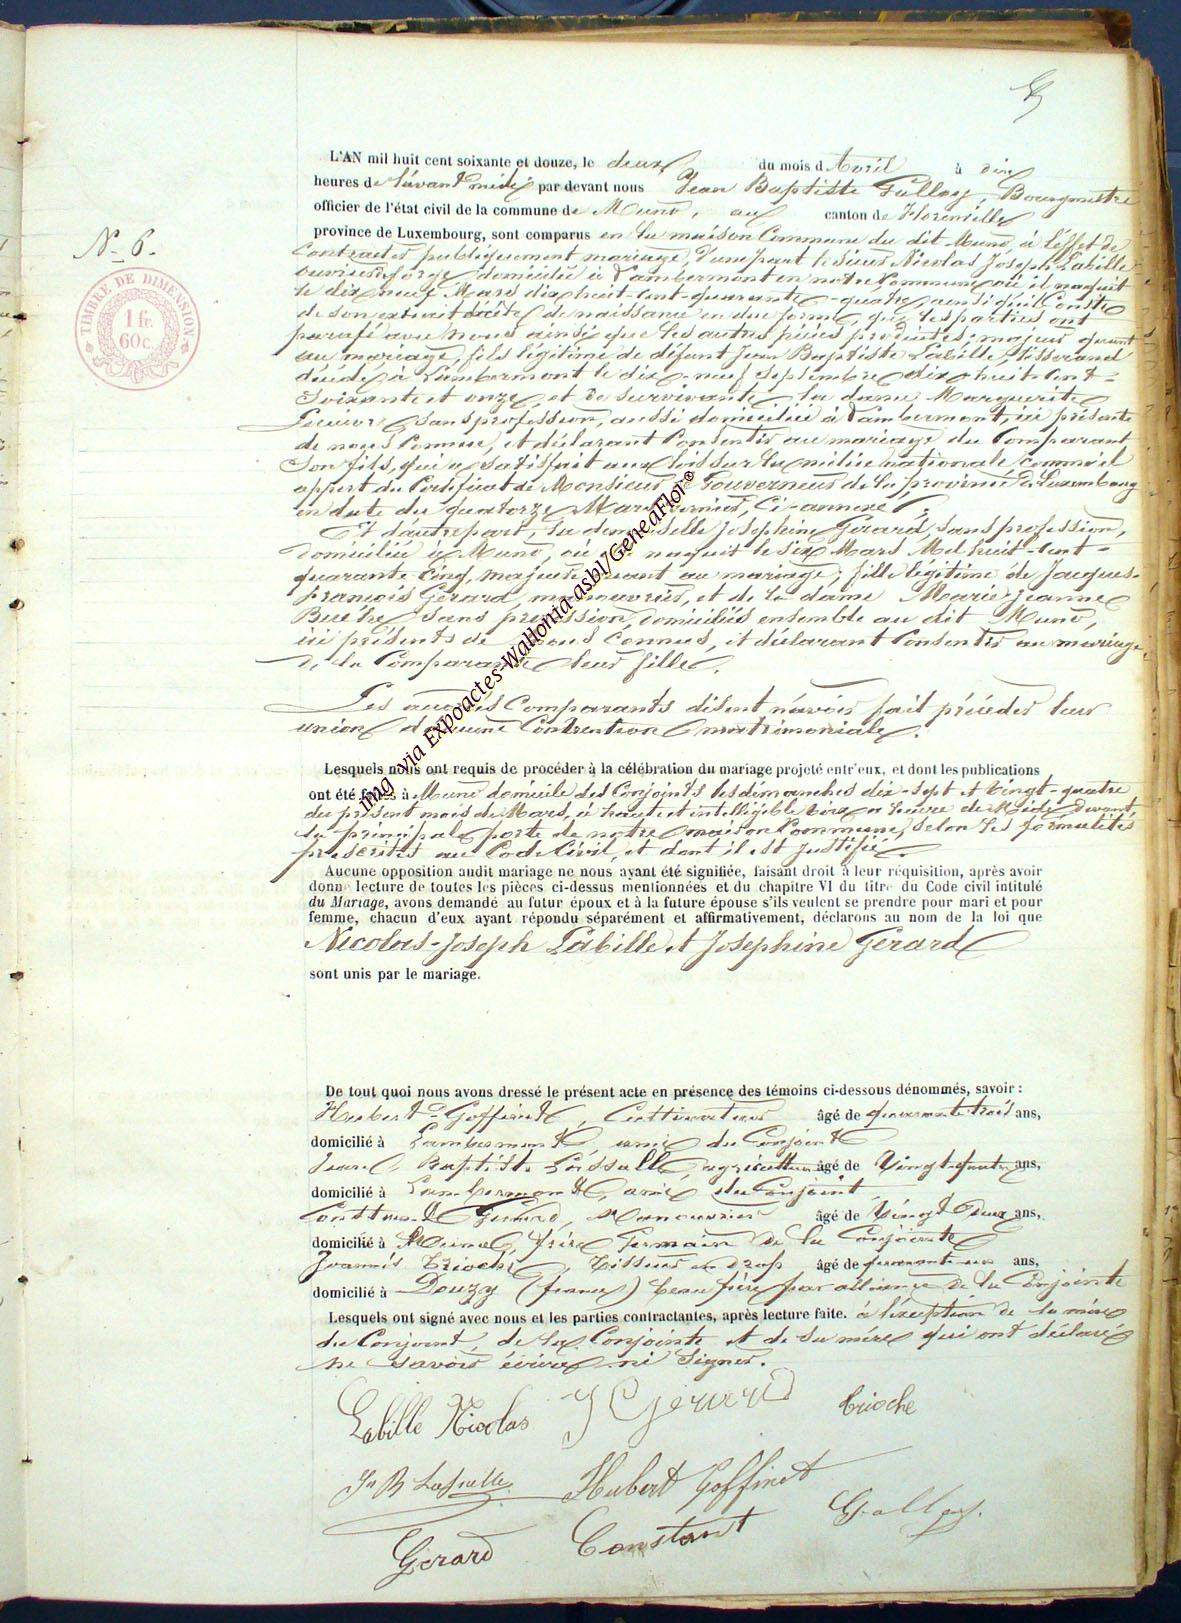 L'AN mil huit cent soixante et douze, le deux du mois d'Avril à dix
heures de l'avant midi par devant nous Jean Baptiste Galloy, Bourgmestre
officier de l'état civil de la commune de Muno, au canton de Florenville
province de Luxembourg, sont comparus en la maison Commune du dit Muno, à l'effet de
N° 6.
contracter publiquement mariage, d'une part le sieur Nicolas Joseph Labille
ouvrier de forge, domicilié à Lambermont en notre Commune où il naquit
le dix neuf Mars dix huit-cent-quarante-quatre, ainsi qu'il Conste
de son extrait d'acte de naissance en due forme, que les parties ont
parafé avec nous ainsi que les autres pièces produites; majeur quant
au mariage, fils légitime de défunt Jean Baptiste Labille, tisserand
décédé à Lambermont le dix-neuf Septembre dix huit-cent-
soixante et onze, et de survivante la dame Marguerite
sans profession, aussi domiciliée à Lambermont, ici présente
de nous Connue, et déclarant Consentir au mariage du Comparant
son fils, qui a satisfait aux lois sur la milice nationale comme il
appert du Certificat de Monsieur le Gouverneur de la province de Luxembourg
en date du quatorze Mars dernier, Ci-annexé.
Et d'autre part, la demoiselle Josephine Gérard, sans profession,
domiciliée à Muno, où elle naquit le six Mars Mil huit-cent-
quarante Cinq, majeure quant au mariage; fille légitime de Jacques-
François Gérard manouvrier, et de la dame Marie Jeanne
sans profession, domiciliés ensemble au dit Muno,
ici présents de nous connus, et déclarant Consentir au mariage
de la Comparante leur fille.
Les avant dits Comparants disent n'avoir fait précéder leur
union d'aucune Convention matrimoniale.
Lesquels nous ont requis de procéder à la célébration du mariage projeté entr'eux, et dont les publications
ont été faites à Muno domicile des Conjoints les dimanches dix-sept et Vingt-quatre
du présent mois de Mars, à haute et intelligible voix à heure de Midi, devant
la principale porte de notre maison Commune, selon les formalités
prescrites au Code Civil, et dont il est justifié.
Aucune opposition audit mariage ne nous ayant été signifiée, faisant droit à leur réquisition, après avoir
donné lecture de toutes les pièces ci-dessus mentionnées et du chapitre VI du titre du Code civil intitulé
du Mariage, avons demandé au futur époux et à la future épouse s'ils veulent se prendre pour mari et pour
femme, chacun d'eux ayant répondu séparément et affirmativement, déclarons au nom de la loi que
Nicolas-Joseph Labille et Josephine Gérard
sont unis par le mariage.
De tout quoi nous avons dressé le présent acte en présence des témoins ci-dessous dénommés, savoir :
Hubert Goffinet, Cultivateur âgé de quarante trois ans,
domicilié à Lambermont, ami du Conjoint
Jean Baptiste Lassalle, agriculteur âgé de Vingt-quatre ans,
domicilié à Lambermont, ami du Conjoint
Constant Gérard, Manouvrier âgé de Vingt Deux ans,
domicilié à Muno, frère Germain de la Conjointe
Trioche, Tisseur en drap âgé de quarante un ans,
domicilié à Douzy (france) beau frère par alliance de la Conjointe
Lesquels ont signé avec nous et les parties contractantes, après lecture faite. à l'exception de la mère
du Conjoint, de la Conjointe et de sa mère qui ont déclaré
ne savoir écrire ni Signer.
Labille Nicolas J Gerard trioche
Jn B Lassalle Hubert Goffinet
Gerard Constant Galloy
TIMBRE DE DIMENSION.
1 fr.
60 c.
img via Expoactes-Wallonia-asbl/GeneaFlor©